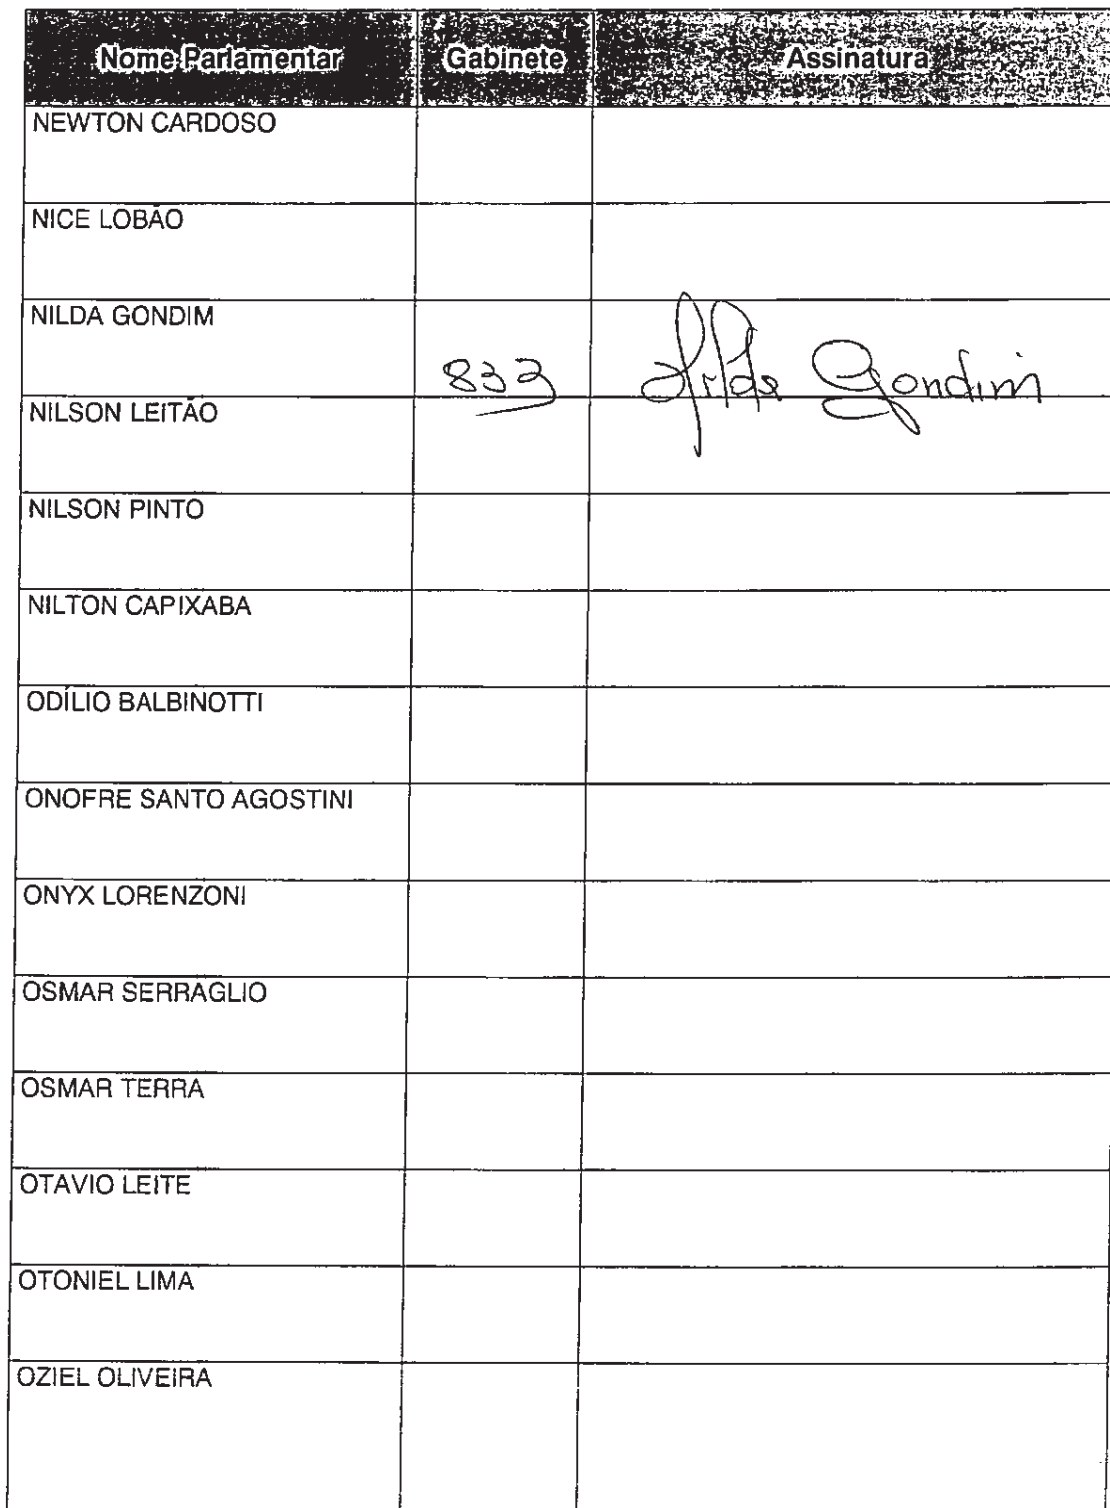 Nome Parlamentar Gabinete Assinatura
NEWTON CARDOSO
NICE LOBÃO
NILDA GONDIM
833 Nilda Gondim
NILSON LEITÃO
NILSON PINTO
NILTON CAPIXABA
ODÍLIO BALBINOTTI
ONOFRE SANTO AGOSTINI
ONYX LORENZONI
OSMAR SERRAGLIO
OSMAR TERRA
OTAVIO LEITE
OTONIEL LIMA
OZIEL OLIVEIRA